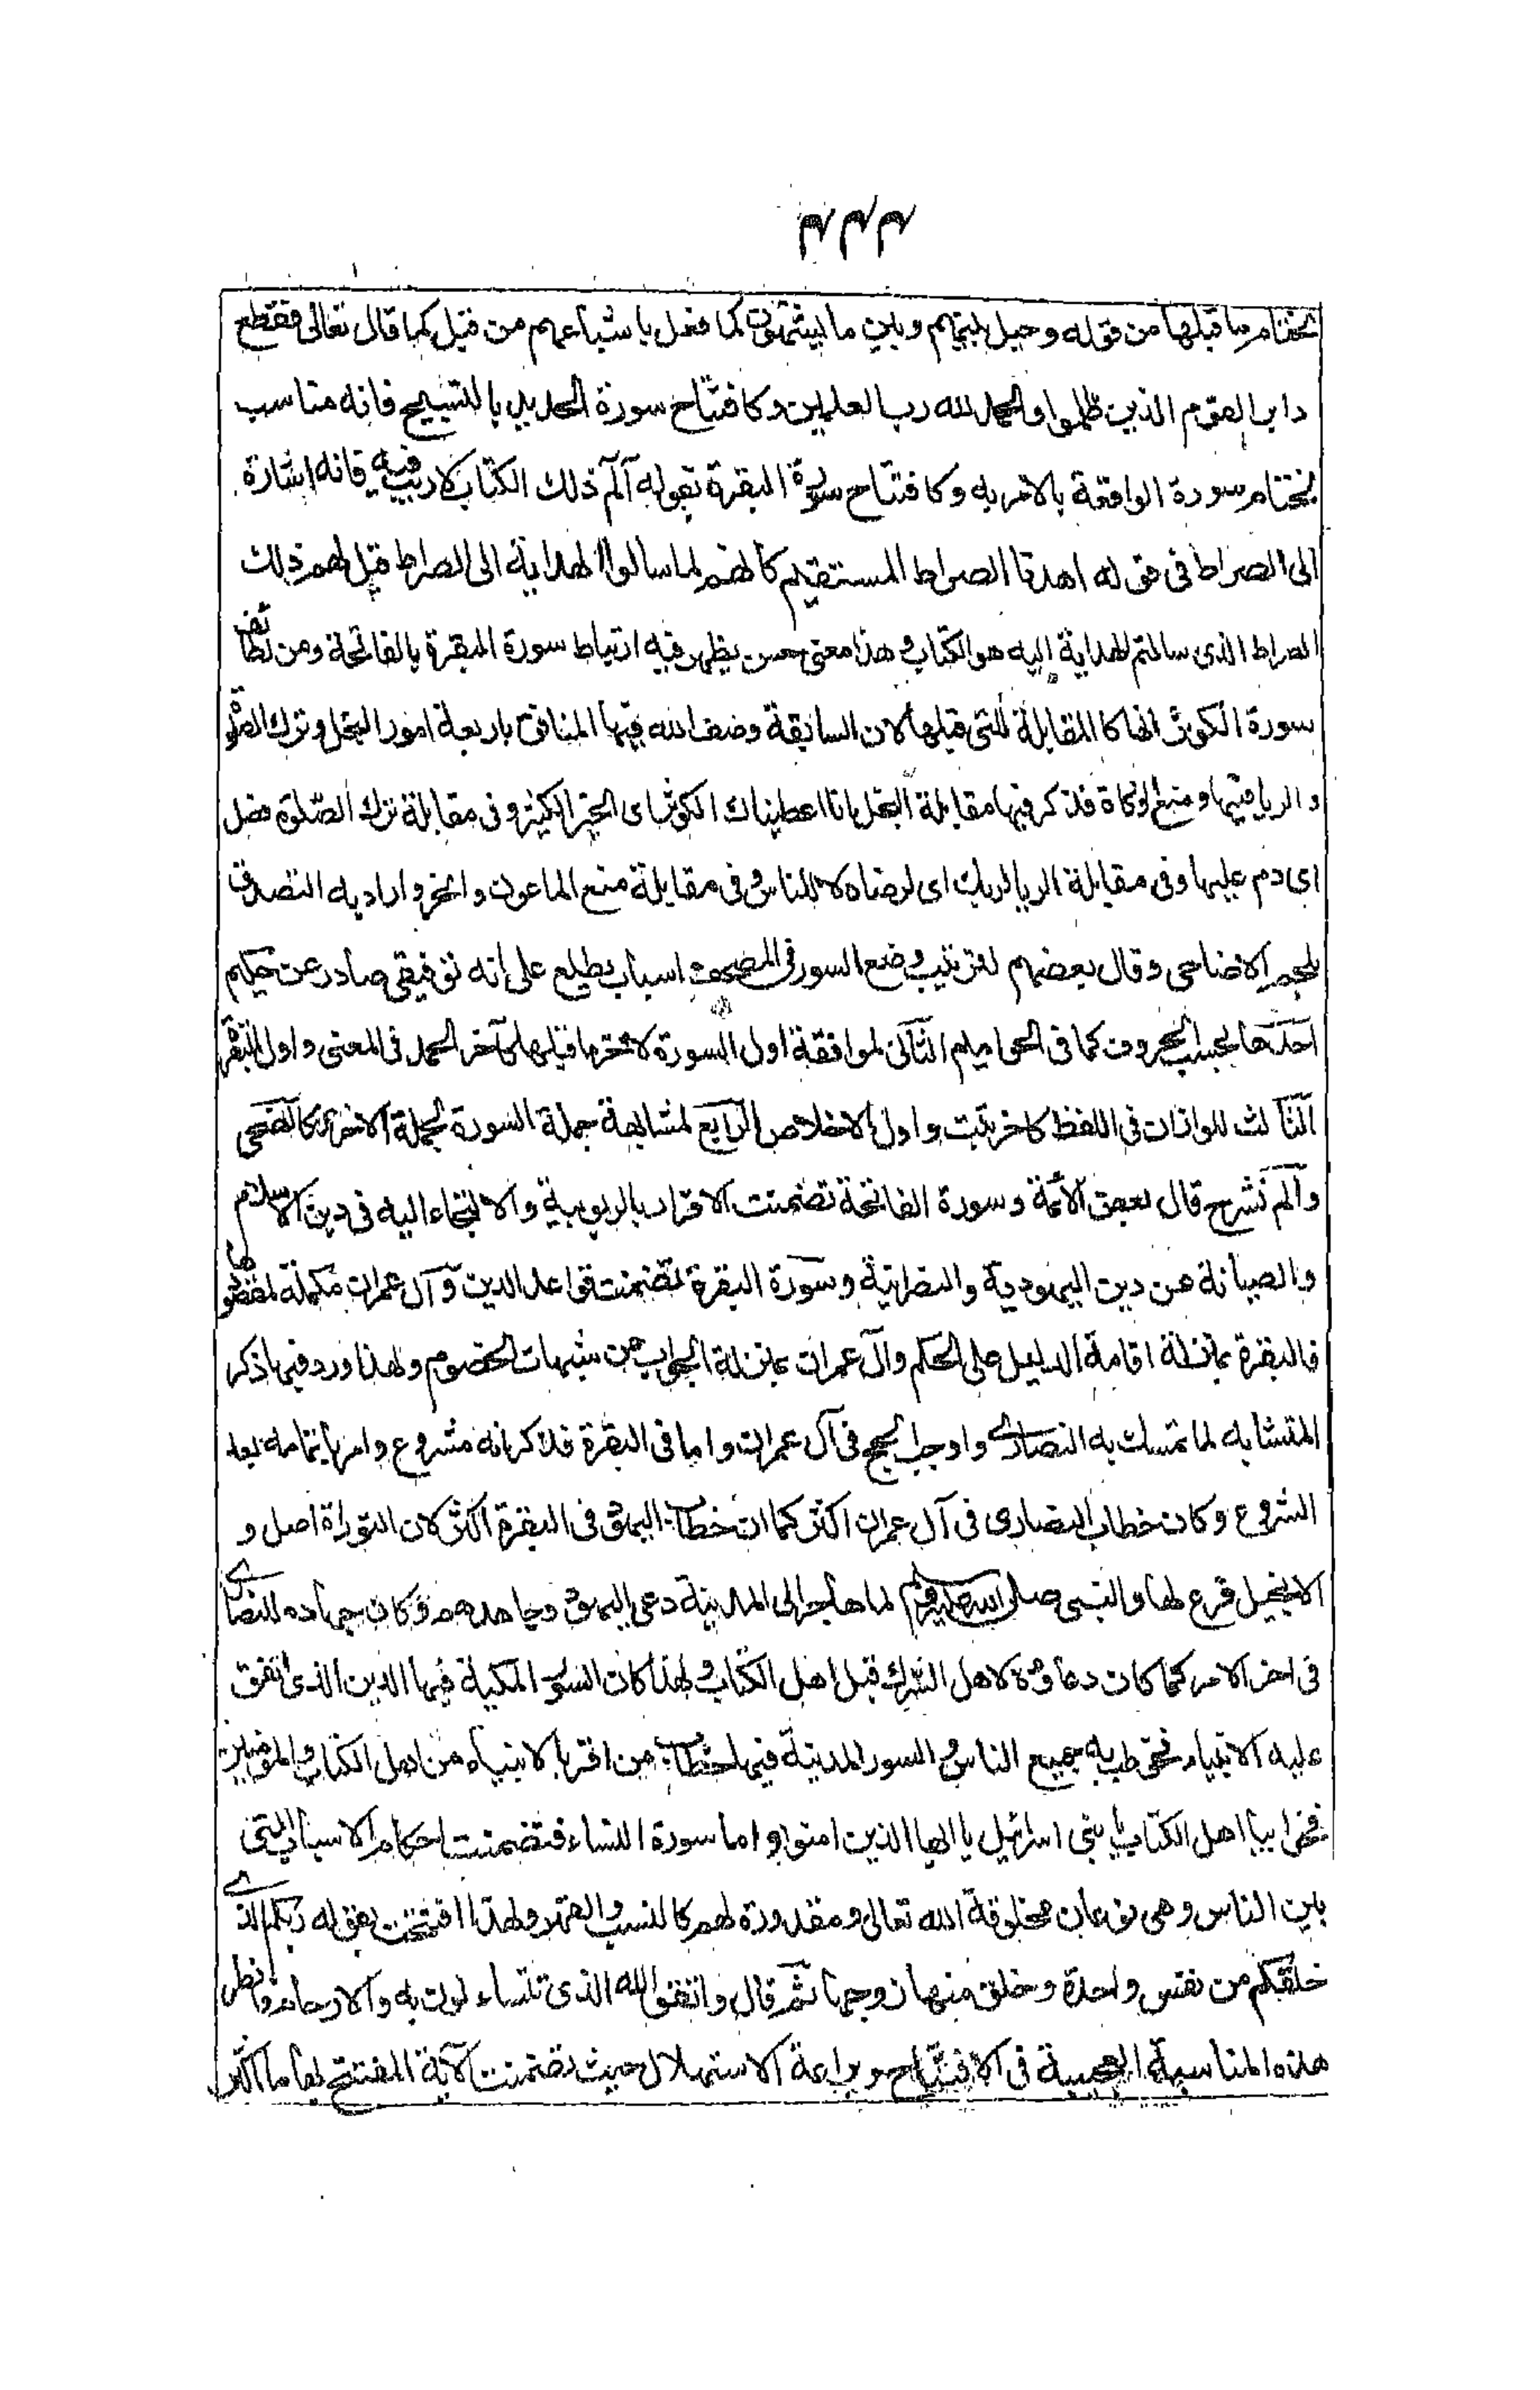 ٣٣٣
لختام ما قبلها من قوله وحيل بينهم وبين ما يشتهون كما فعل باشياعهم من قبل كما قال تعالى فقطع
دابر القوم الذين ظلموا والحمد لله رب العلمين وكافتتاح سورة الحديد بالتسبيح فانه مناسب
لختام سورة الواقعة بالامر به وكافتتاح سورة البقرة بقوله آلم ذلك الكتاب لا ريب فيه فانه اشارة
الى الصراط فى قوله اهدنا الصراط المستقيم كانهم لما سالوا الهداية الى الصراط قيل لهم ذلك
الصراط الذى سالتم الهداية اليه هو الكتاب وهذا معنى حسن يظهر فيه ارتباط سورة البقرة بالفاتحة ومن لطائف
سورة الكوثر انها كالمقابلة للتى قبلها لان السابقة وصف الله فيها المنافق باربعة امور البخل وترك الصلوة
والريا فيها ومنع الزكاة فذكر فيها مقابلة البخل انا اعطيناك الكوثر اى الخير الكثير وفى مقابلة ترك الصلوة فصل
اى دم عليها وفى مقابلة الريا لربك اى لرضاه لا للناس وفى مقابلة منع الماعون وانحر واراد به التصدق
بلحم الاضاحى وقال بعضهم لترتيب وضع السور فى المصحف اسباب يطلع على انه توقيفى صادر عن حكيم
احدها بحسب الحروف كما فى الحواميم الثانى لموافقة اول السورة لاخر ما قبلها كآخر الحمد فى المعنى واول البقرة
الثالث للوازن فى اللفظ كاخر تبت واول الاخلاص الرابع لمشابهة جملة السورة لجملة الاخرى كالضحى
وآلم نشرح قال بعض الأئمة وسورة الفاتحة تضمنت الاقرار بالربوبية والالتجاء اليه فى دين الاسلام
والصيانة عن دين اليهودية والنصرانية وسورة البقرة تضمنت قواعد الدين وآل عمران مكملة لمقصودها
فالبقرة بمنزلة اقامة الدليل على الحكم وآل عمران بمنزلة الجواب عن شبهات الخصوم ولهذا ورد فيها ذكر
المتشابه لما تمسك به النصارى واوجب الحج فى آل عمران واما فى البقرة فذكر انه مشروع وامر باتمامه بعد
الشروع وكان خطاب النصارى فى آل عمران اكثر كما ان خطاب اليهود فى البقرة اكثر لان التوراة اصل و
الانجيل فرع لها والنبى صلى الله عليه وسلم لما هاجر الى المدينة دعى اليهود وجاهدهم وكان جهاده للنصارى
فى اخر الامر كما كان دعاؤه لاهل الشرك قبل اهل الكتاب ولهذا كان السور المكية فيها الدين الذى اتفق
عليه الانبياء فخوطب به جميع الناس والسور المدنية فيها خطاب من اقر بالانبياء من اهل الكتاب والمؤمنين
فخوطبوا يا اهل الكتاب يا بنى اسرائيل يا ايها الذين امنوا واما سورة النساء فتضمنت احكام الاسباب التى
بين الناس وهى نوعان مخلوقة الله تعالى ومقدورة لهم كالنسب والصهر ولهذا افتتحت بقوله ربكم الذى
خلقكم من نفس واحدة وخلق منها زوجها ثم قال واتقوا الله الذى تتساءلون به والارحام وانظر
هذه المناسبة العجيبة فى الافتتاح وبراعة الاستهلال حيث تضمنت الآية المفتتح بها ما اكثر